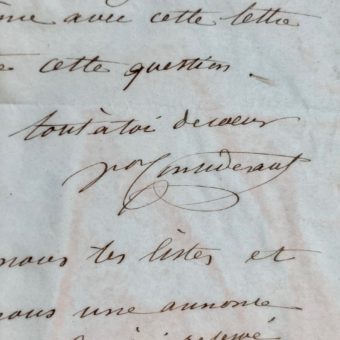 avec cette lettre
cette question.
tout à toi de coeur
Considerant
nous tes listes et
nous une annonce